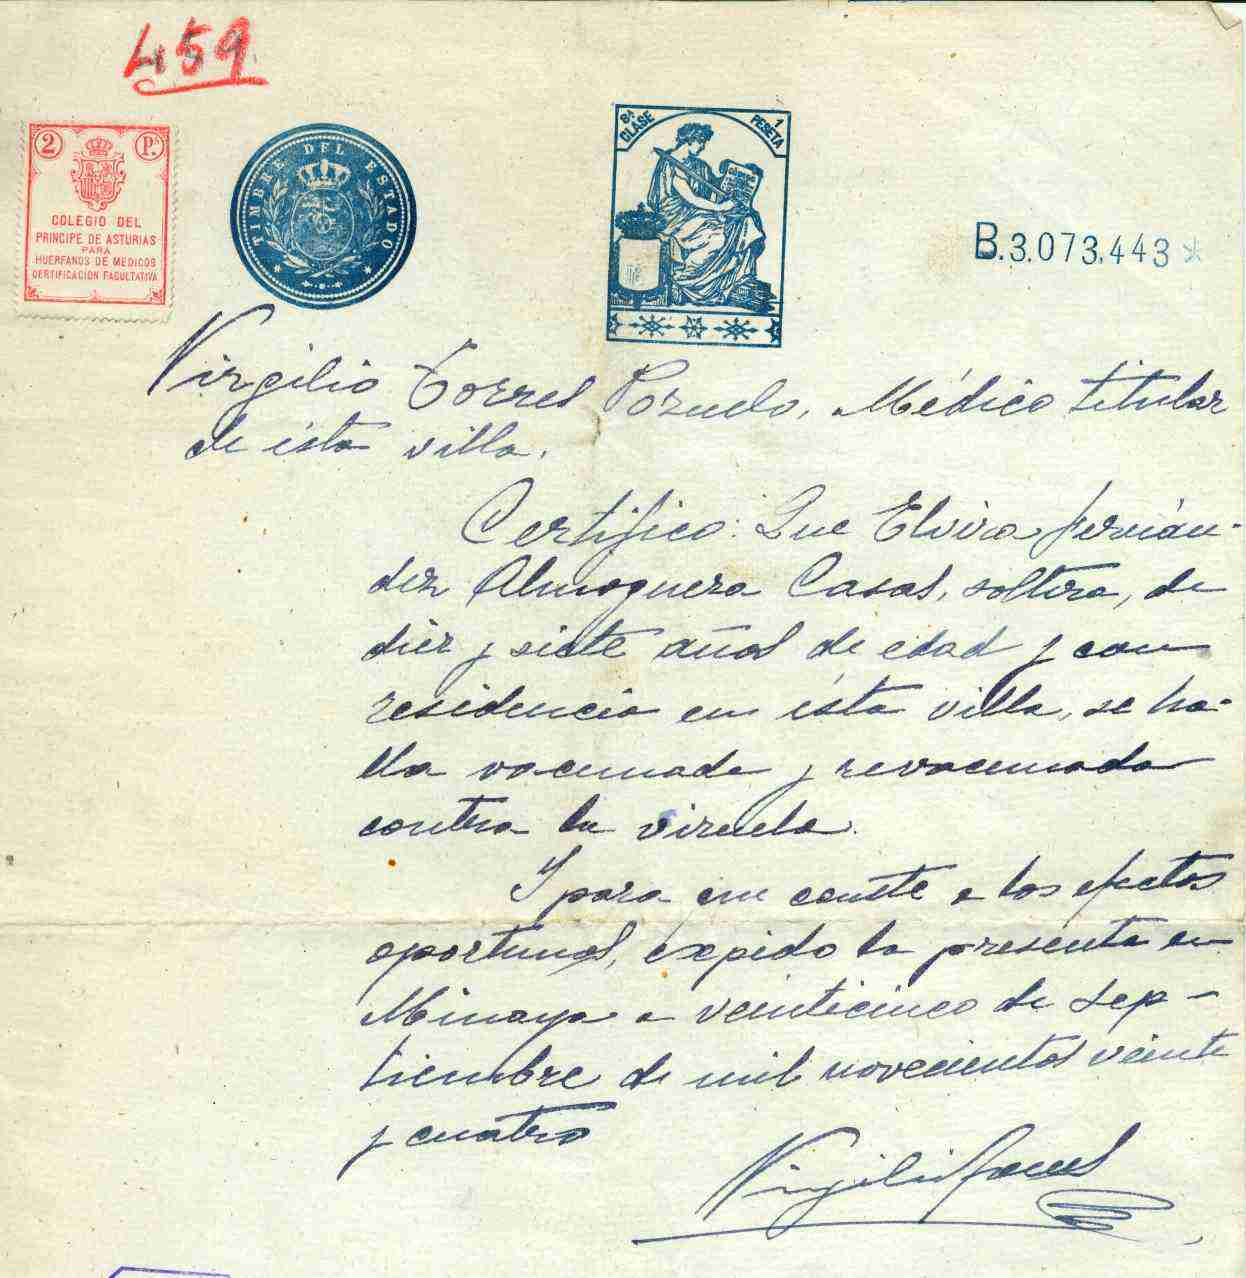 459
2 Ps
COLEGIO DEL
PRINCIPE DE ASTURIAS
PARA
HUERFANOS DE MEDICOS
CERTIFICACION FACULTATIVA
TIMBRE DEL ESTADO
8ª CLASE
1 PESETA
B.3.073.443
Virgilio Torres Pozuelo, Médico titular
de ésta villa.
Certifico: Que Elvira Fernán-
dez Almoguera Casas, soltera, de
diez y siete años de edad y con
residencia en ésta villa, se ha-
lla vacunada y revacunada
contra la viruela.
Y para que conste a los efectos
oportunos, expido la presente en
Minaya a veinticinco de sep-
tiembre de mil novecientos veinte
y cuatro
Virgilio Torres